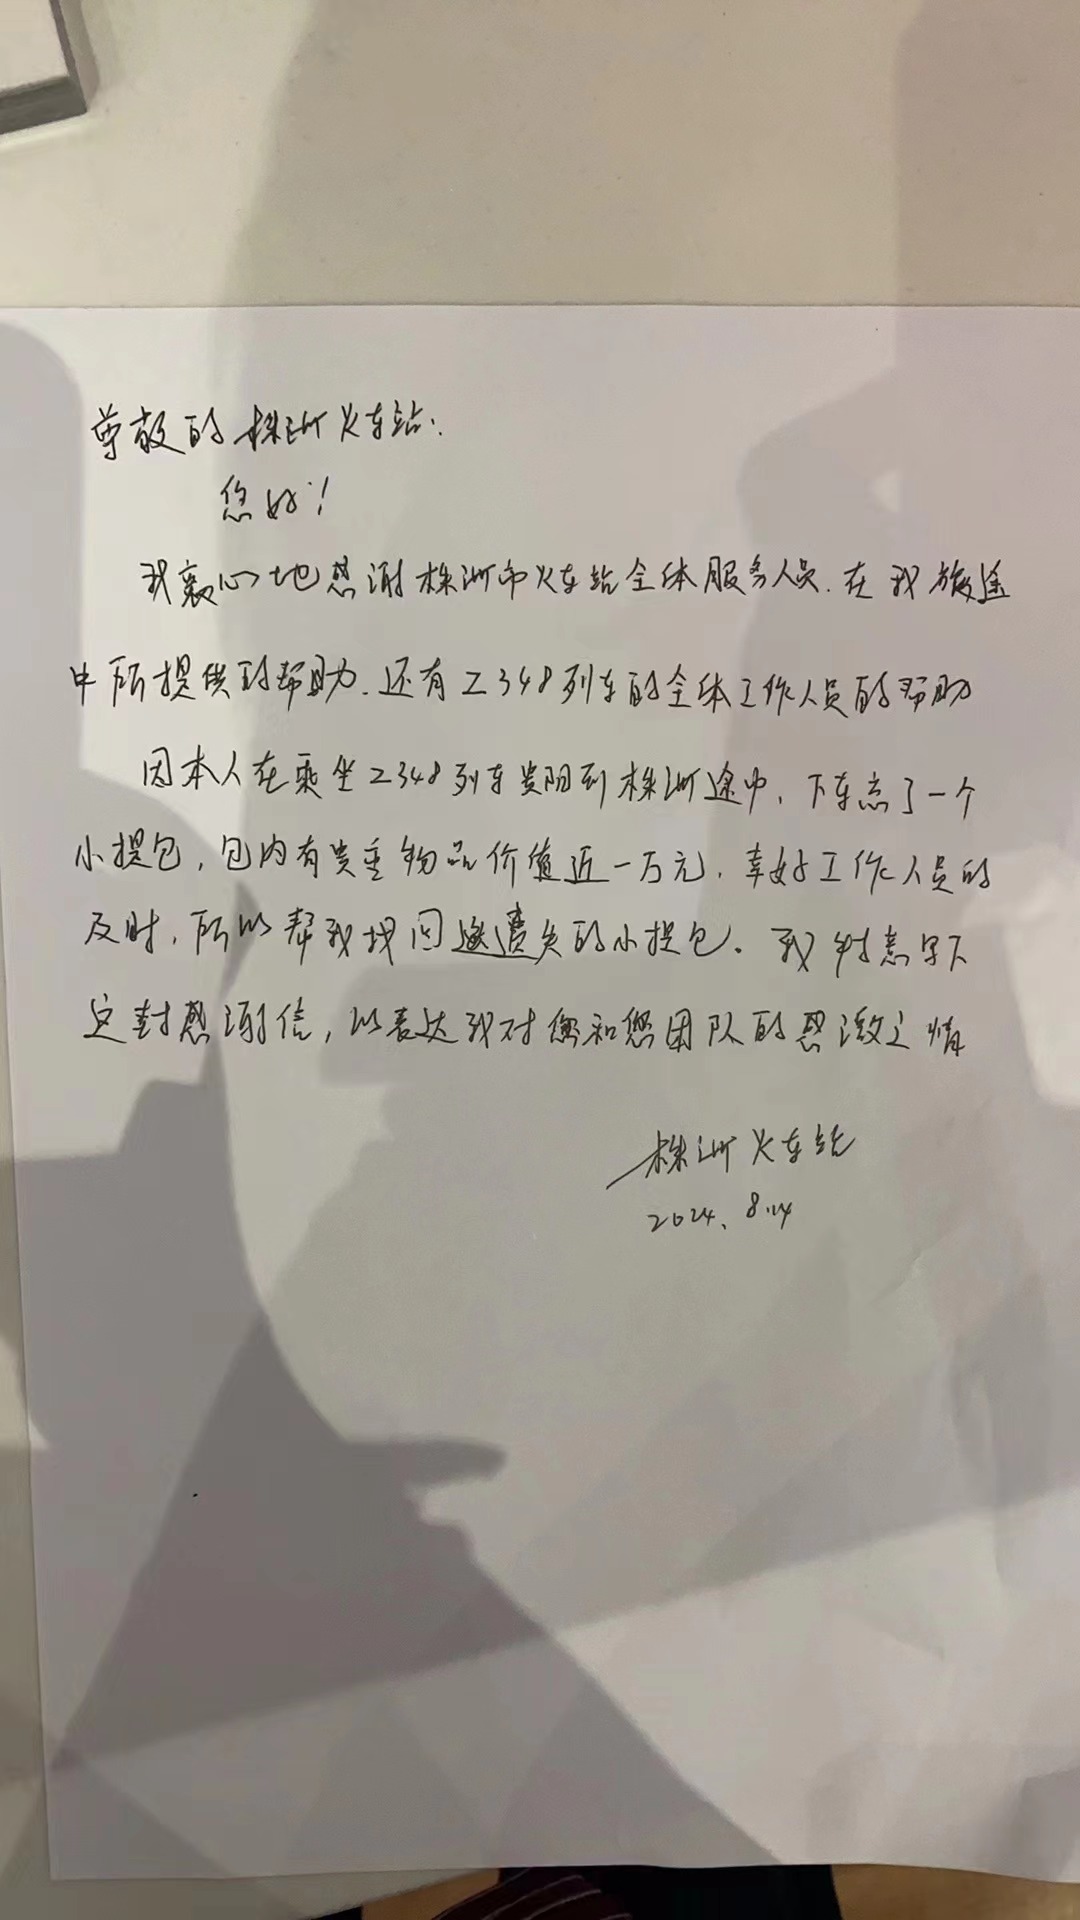 尊敬的株洲火车站:
您好!
我衷心地感谢株洲市火车站全体服务人员.在我旅途
中所提供的帮助.还有Z348列车的全体工作人员的帮助
因本人在乘坐Z348列车贵阳到株洲途中,下车忘了一个
小提包,包内有贵重物品价值近一万元.幸好工作人员的
及时,所以帮我找回遗失的小提包.我特意写下
这封感谢信,以表达我对您和您团队的感激之情
株洲火车站
2024.8.14